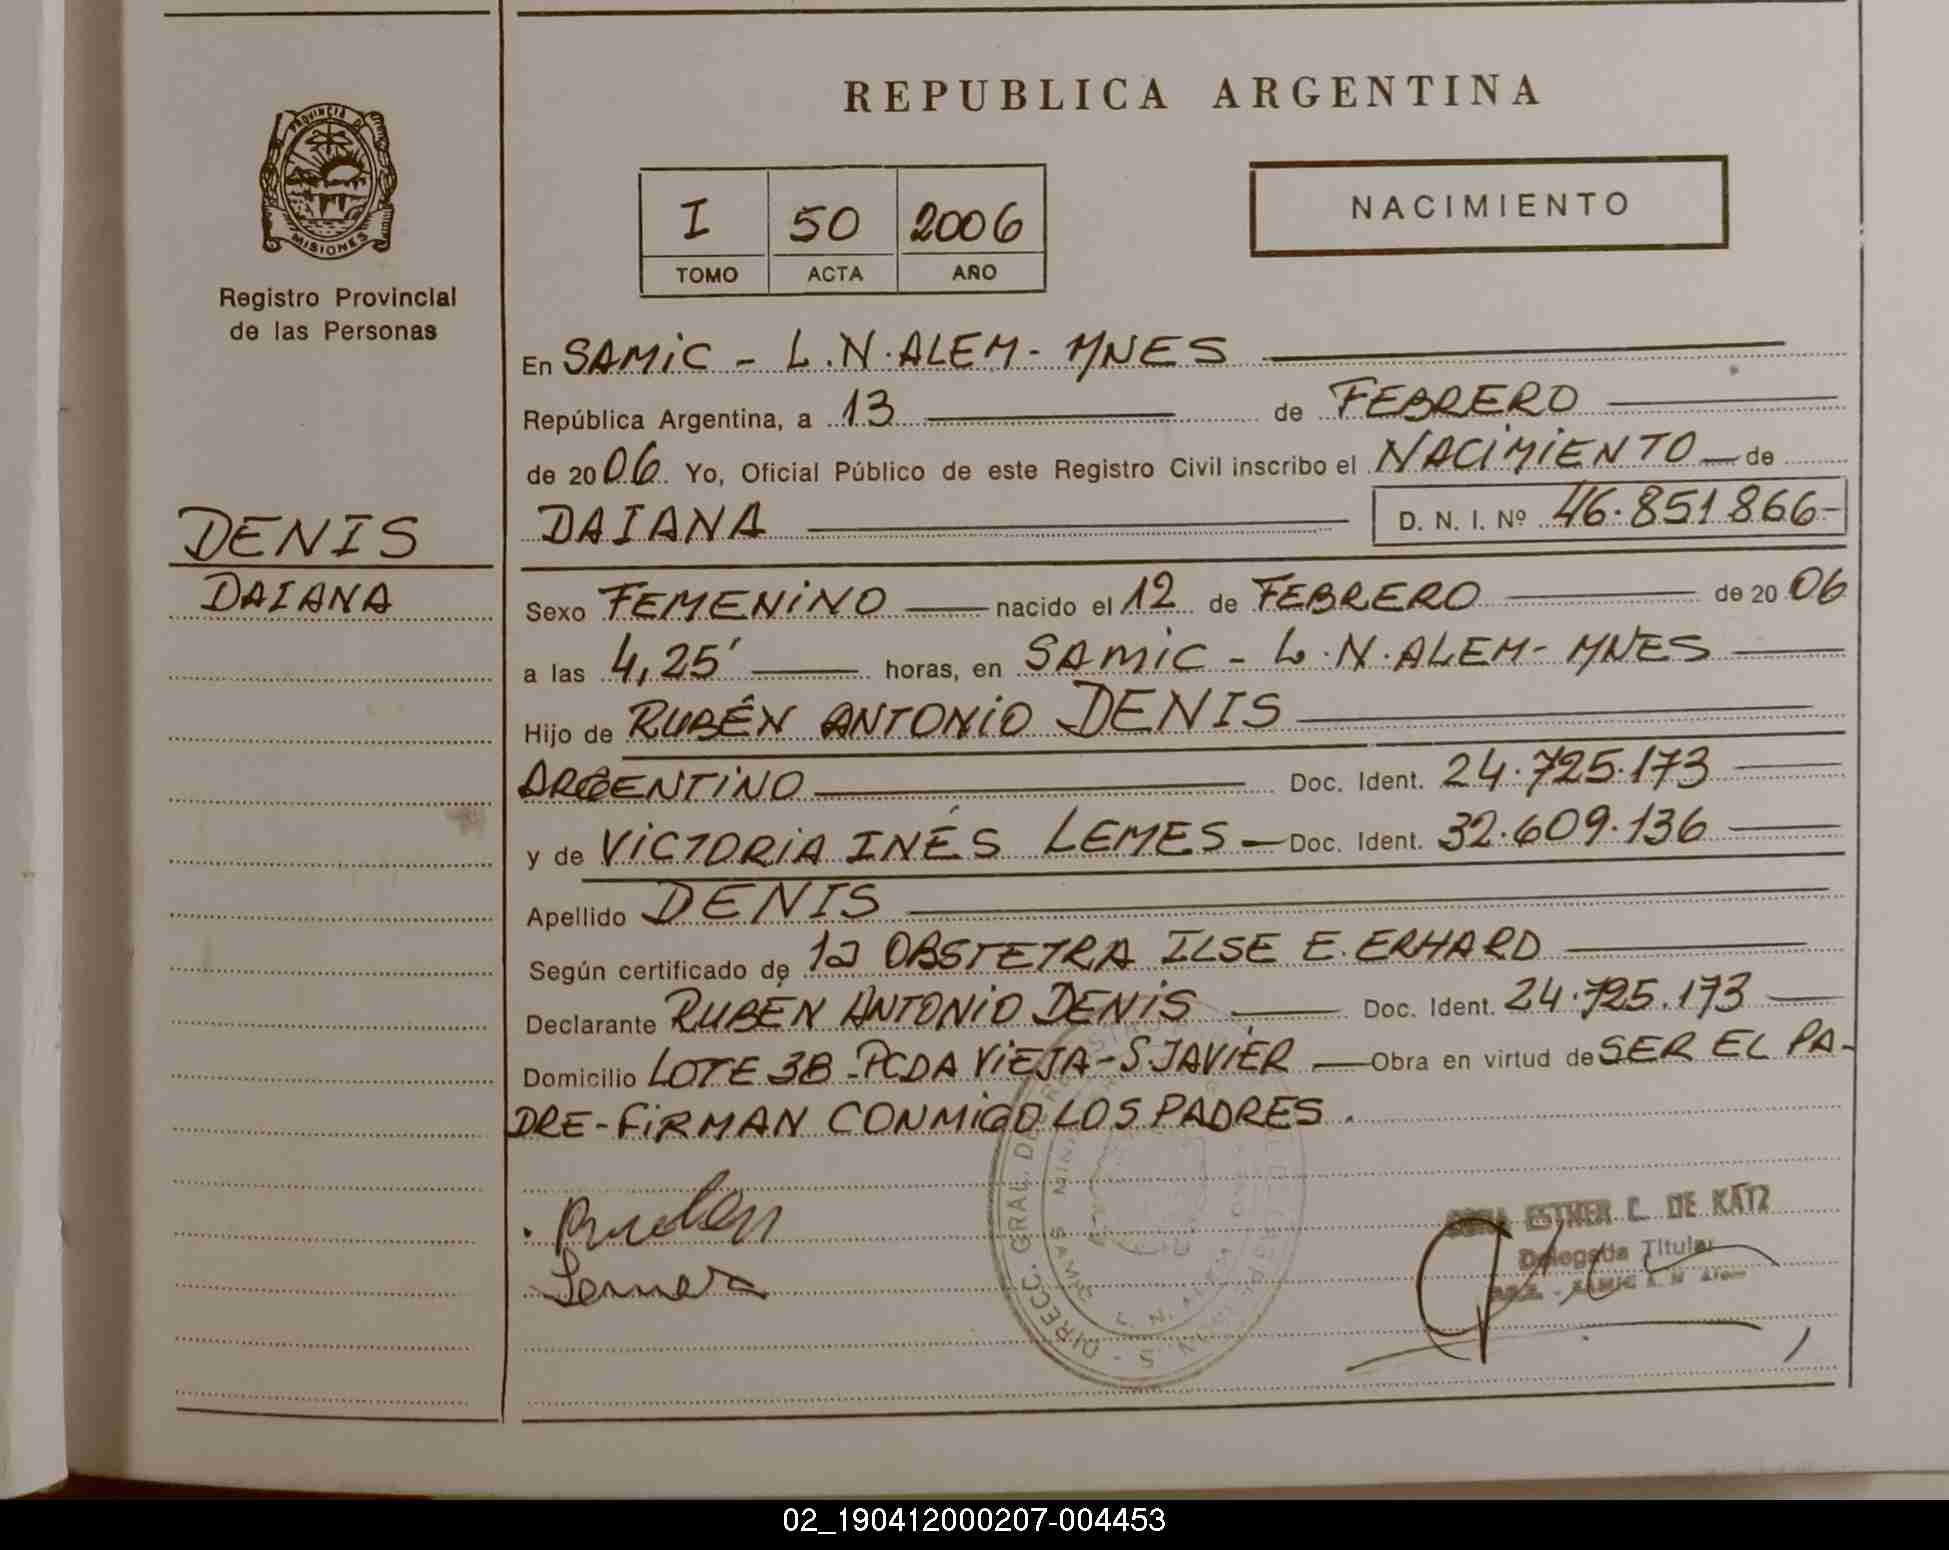 REPUBLICA ARGENTINA
PROVINCIA DE
MISIONES
Registro Provincial
de las Personas
I 50 2006
TOMO ACTA AÑO
NACIMIENTO
En SAMIC - L.N. ALEM - MNES
República Argentina, a 13 de FEBRERO
de 2006. Yo, Oficial Público de este Registro Civil inscribo el NACIMIENTO de
DAIANA D. N. I. Nº 46.851.866-
DENIS
DAIANA
Sexo FEMENINO nacido el 12 de FEBRERO de 2006
a las 4,25' horas, en SAMIC - L.N. ALEM - MNES
Hijo de RUBÉN ANTONIO DENIS
ARGENTINO Doc. Ident. 24.725.173
y de VICTORIA INÉS LEMES - Doc. Ident. 32.609.136
Apellido DENIS
Según certificado de la OBSTETRA ILSE E. ERHARD
Declarante RUBÉN ANTONIO DENIS Doc. Ident. 24.725.173
Domicilio LOTE 38 - PCDA VIEJA - S JAVIER - Obra en virtud de SER EL PA-
DRE - FIRMAN CONMIGO LOS PADRES.
ESTHER C. DE KATZ
Delegada Titular
SAMIC L. N. Alem
DIRECC. GRAL. DE
SAMIC L. N. ALEM
02_190412000207-004453